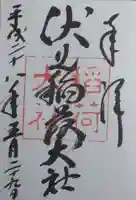 奉拝
伏見稲荷大社
稲荷
大社
平成二十八年五月二十九日